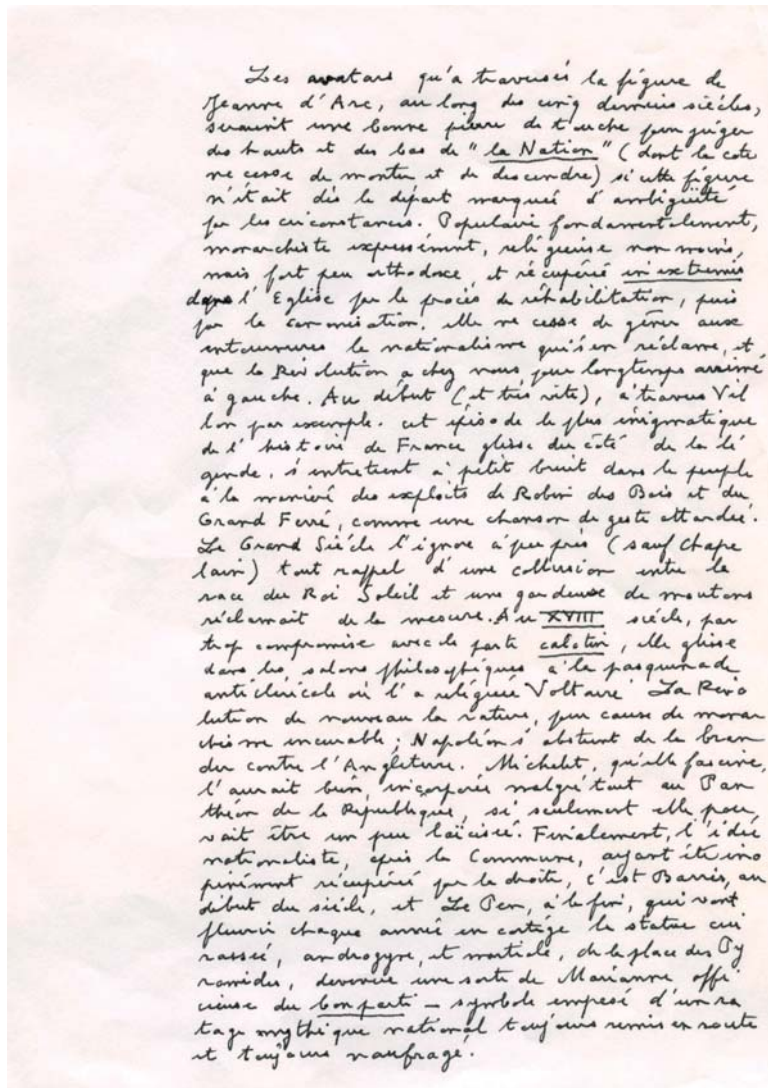 Les avatars qu'a traversés la figure de
Jeanne d'Arc, au long des cinq derniers siècles,
seraient une bonne pierre de touche pour juger
des hauts et des bas de "la Nation" (dont la cote
ne cesse de monter et de descendre) si cette figure
n'était dès le départ marquée d'ambigüité
par les circonstances. Populaire fondamentalement,
monarchiste expressément, religieuse non moins,
mais fort peu orthodoxe, et récupérée in extremis
dans l'Eglise par le procès de réhabilitation, puis
par la canonisation, elle ne cesse de gêner aux
entournures le nationalisme qui s'en réclame, et
que la Révolution a chez nous pour longtemps arrimé
à gauche. Au début (et très vite), à travers Vil
lon par exemple. cet épisode le plus énigmatique
de l'histoire de France glisse du côté de la lé
gende, s'entretient à petit bruit dans le peuple
à la manière des exploits de Robin des Bois et du
Grand Ferré, comme une chanson de geste attardée.
Le Grand Siècle l'ignore à peu près (sauf Chape
lain) tout rappel d'une collusion entre la
race du Roi Soleil et une gardeuse de moutons
réclamait de la mesure. Au XVIII siècle, par
trop compromise avec le parti calotin, elle glisse
dans les salons philosophiques à la pasquinade
anticléricale où l'a reléguée Voltaire. La Révo
lution de nouveau la rature, pour cause de monar
chisme incurable; Napoléon s'abstient de la bran
dir contre l'Angleterre. Michelet, qu'elle fascine,
l'aurait bien, incorporée malgré tout au Pan
théon de la République, si seulement elle pou
vait être un peu laïcisée. Finalement, l'idée
nationaliste, après la Commune, ayant été ino
pinément récupérée par la droite, c'est Barrès, au
début du siècle, et Le Pen, à la fin, qui vont
fleurir chaque année en cortège la statue cui
rassée, androgyne, et martiale, de la place des Py
ramides, devenue une sorte de Marianne offi
cieuse du bon parti – symbole empesé d'un ra
tage mythique national toujours remis en route
et toujours naufragé.